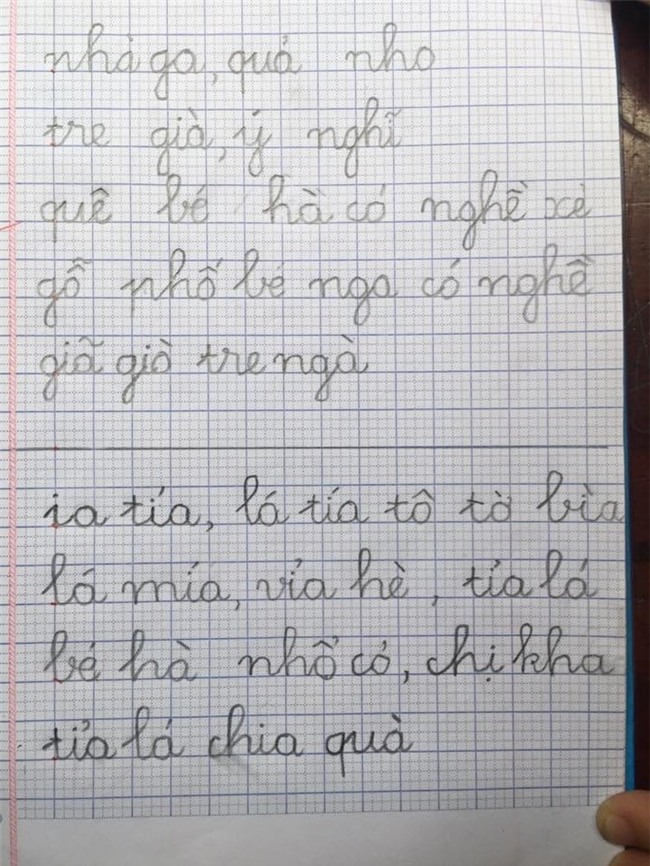 nhà ga, quả nho
tre già, ý nghĩ
quê bé hà có nghề xẻ
gỗ phố bé nga có nghề
giã giò tre ngà
ia tía, lá tía tô tờ bìa
lá mía, vỉa hè, tỉa lá
bé hà nhổ cỏ, chị kha
tỉa lá chia quà